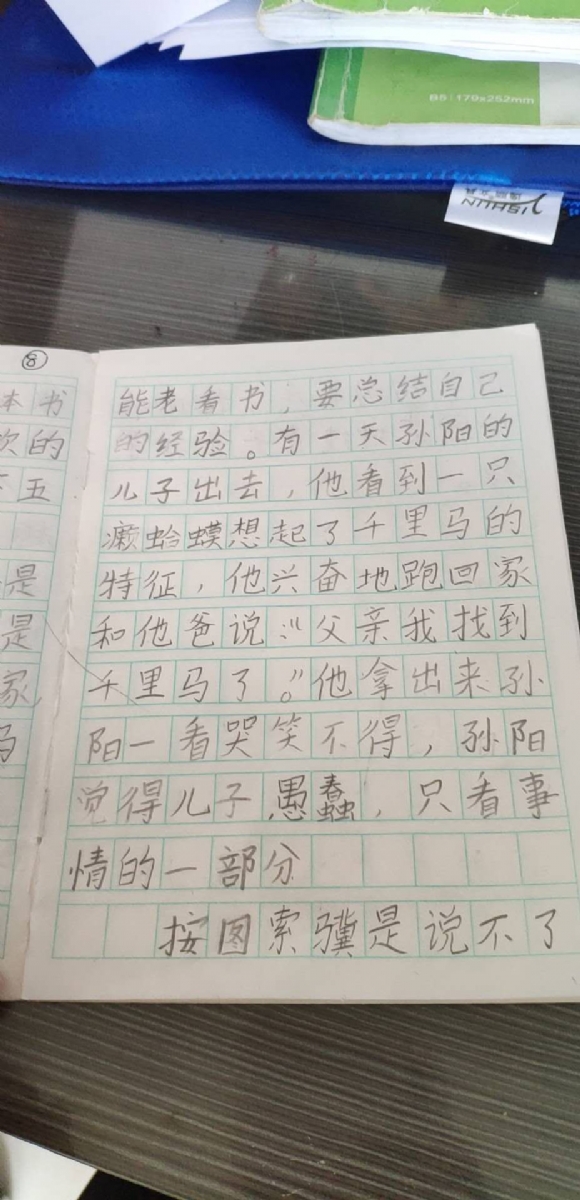 B5:179x252mm
YISHUN
⑧
本书
欢的
五
是
是
家,
马
能老看书，要总结自己
的经验。有一天孙阳的
儿子出去，他看到一只
癞蛤蟆想起了千里马的
特征，他兴奋地跑回家
和他爸说：“父亲我找到
千里马了。”他拿出来孙
阳一看哭笑不得，孙阳
觉得儿子愚蠢，只看事
情的一部分
按图索骥是说不了